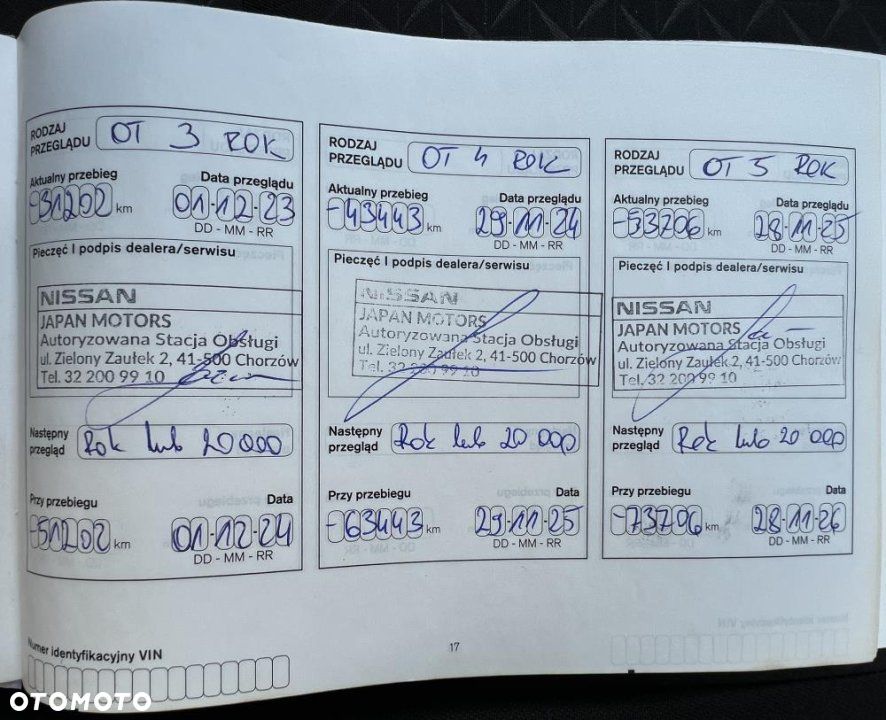 RODZAJ
PRZEGLĄDU
OT 3 ROK
Aktualny przebieg
Data przeglądu
-31202 km
01-12-23
DD - MM - RR
Pieczęć I podpis dealera/serwisu
NISSAN
JAPAN MOTORS
Autoryzowana Stacja Obsługi
ul. Zielony Zaułek 2, 41-500 Chorzów
Tel. 32 200 99 10
Następny
przegląd
Rok lub 20 000
Przy przebiegu
Data
-51202 km
01-12-24
DD - MM - RR
RODZAJ
PRZEGLĄDU
OT 4 ROK
Aktualny przebieg
Data przeglądu
-43443 km
29-11-24
DD - MM - RR
Pieczęć I podpis dealera/serwisu
NISSAN
JAPAN MOTORS
Autoryzowana Stacja Obsługi
ul. Zielony Zaułek 2, 41-500 Chorzów
Tel. 32 200 99 10
Następny
przegląd
Rok lub 20 000
Przy przebiegu
Data
-63443 km
29-11-25
DD - MM - RR
RODZAJ
PRZEGLĄDU
OT 5 ROK
Aktualny przebieg
Data przeglądu
-53706 km
28-11-25
DD - MM - RR
Pieczęć I podpis dealera/serwisu
NISSAN
JAPAN MOTORS
Autoryzowana Stacja Obsługi
ul. Zielony Zaułek 2, 41-500 Chorzów
Tel. 32 200 99 10
Następny
przegląd
Rok lub 20 000
Przy przebiegu
Data
-73706 km
28-11-26
DD - MM - RR
Numer identyfikacyjny VIN
17
OTOMOTO